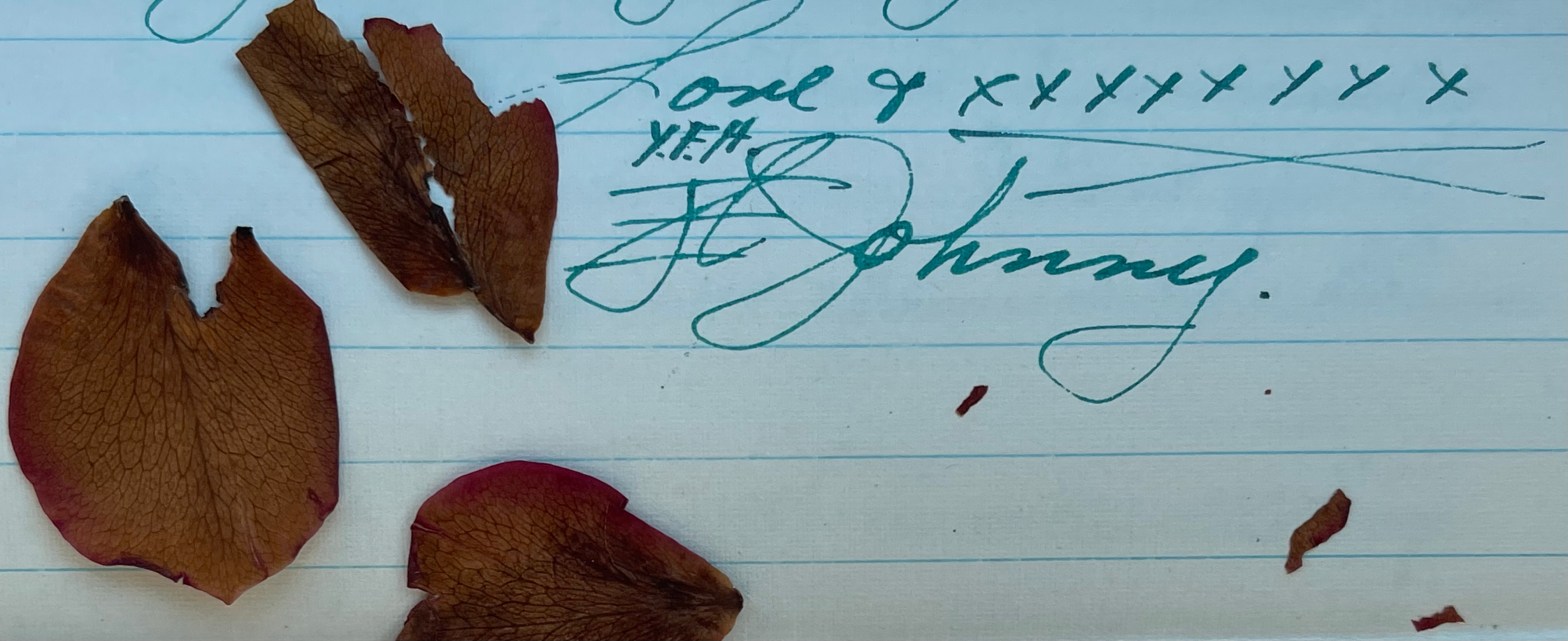 Love & x x x x x x x x
Y.F.H.
Johnny.